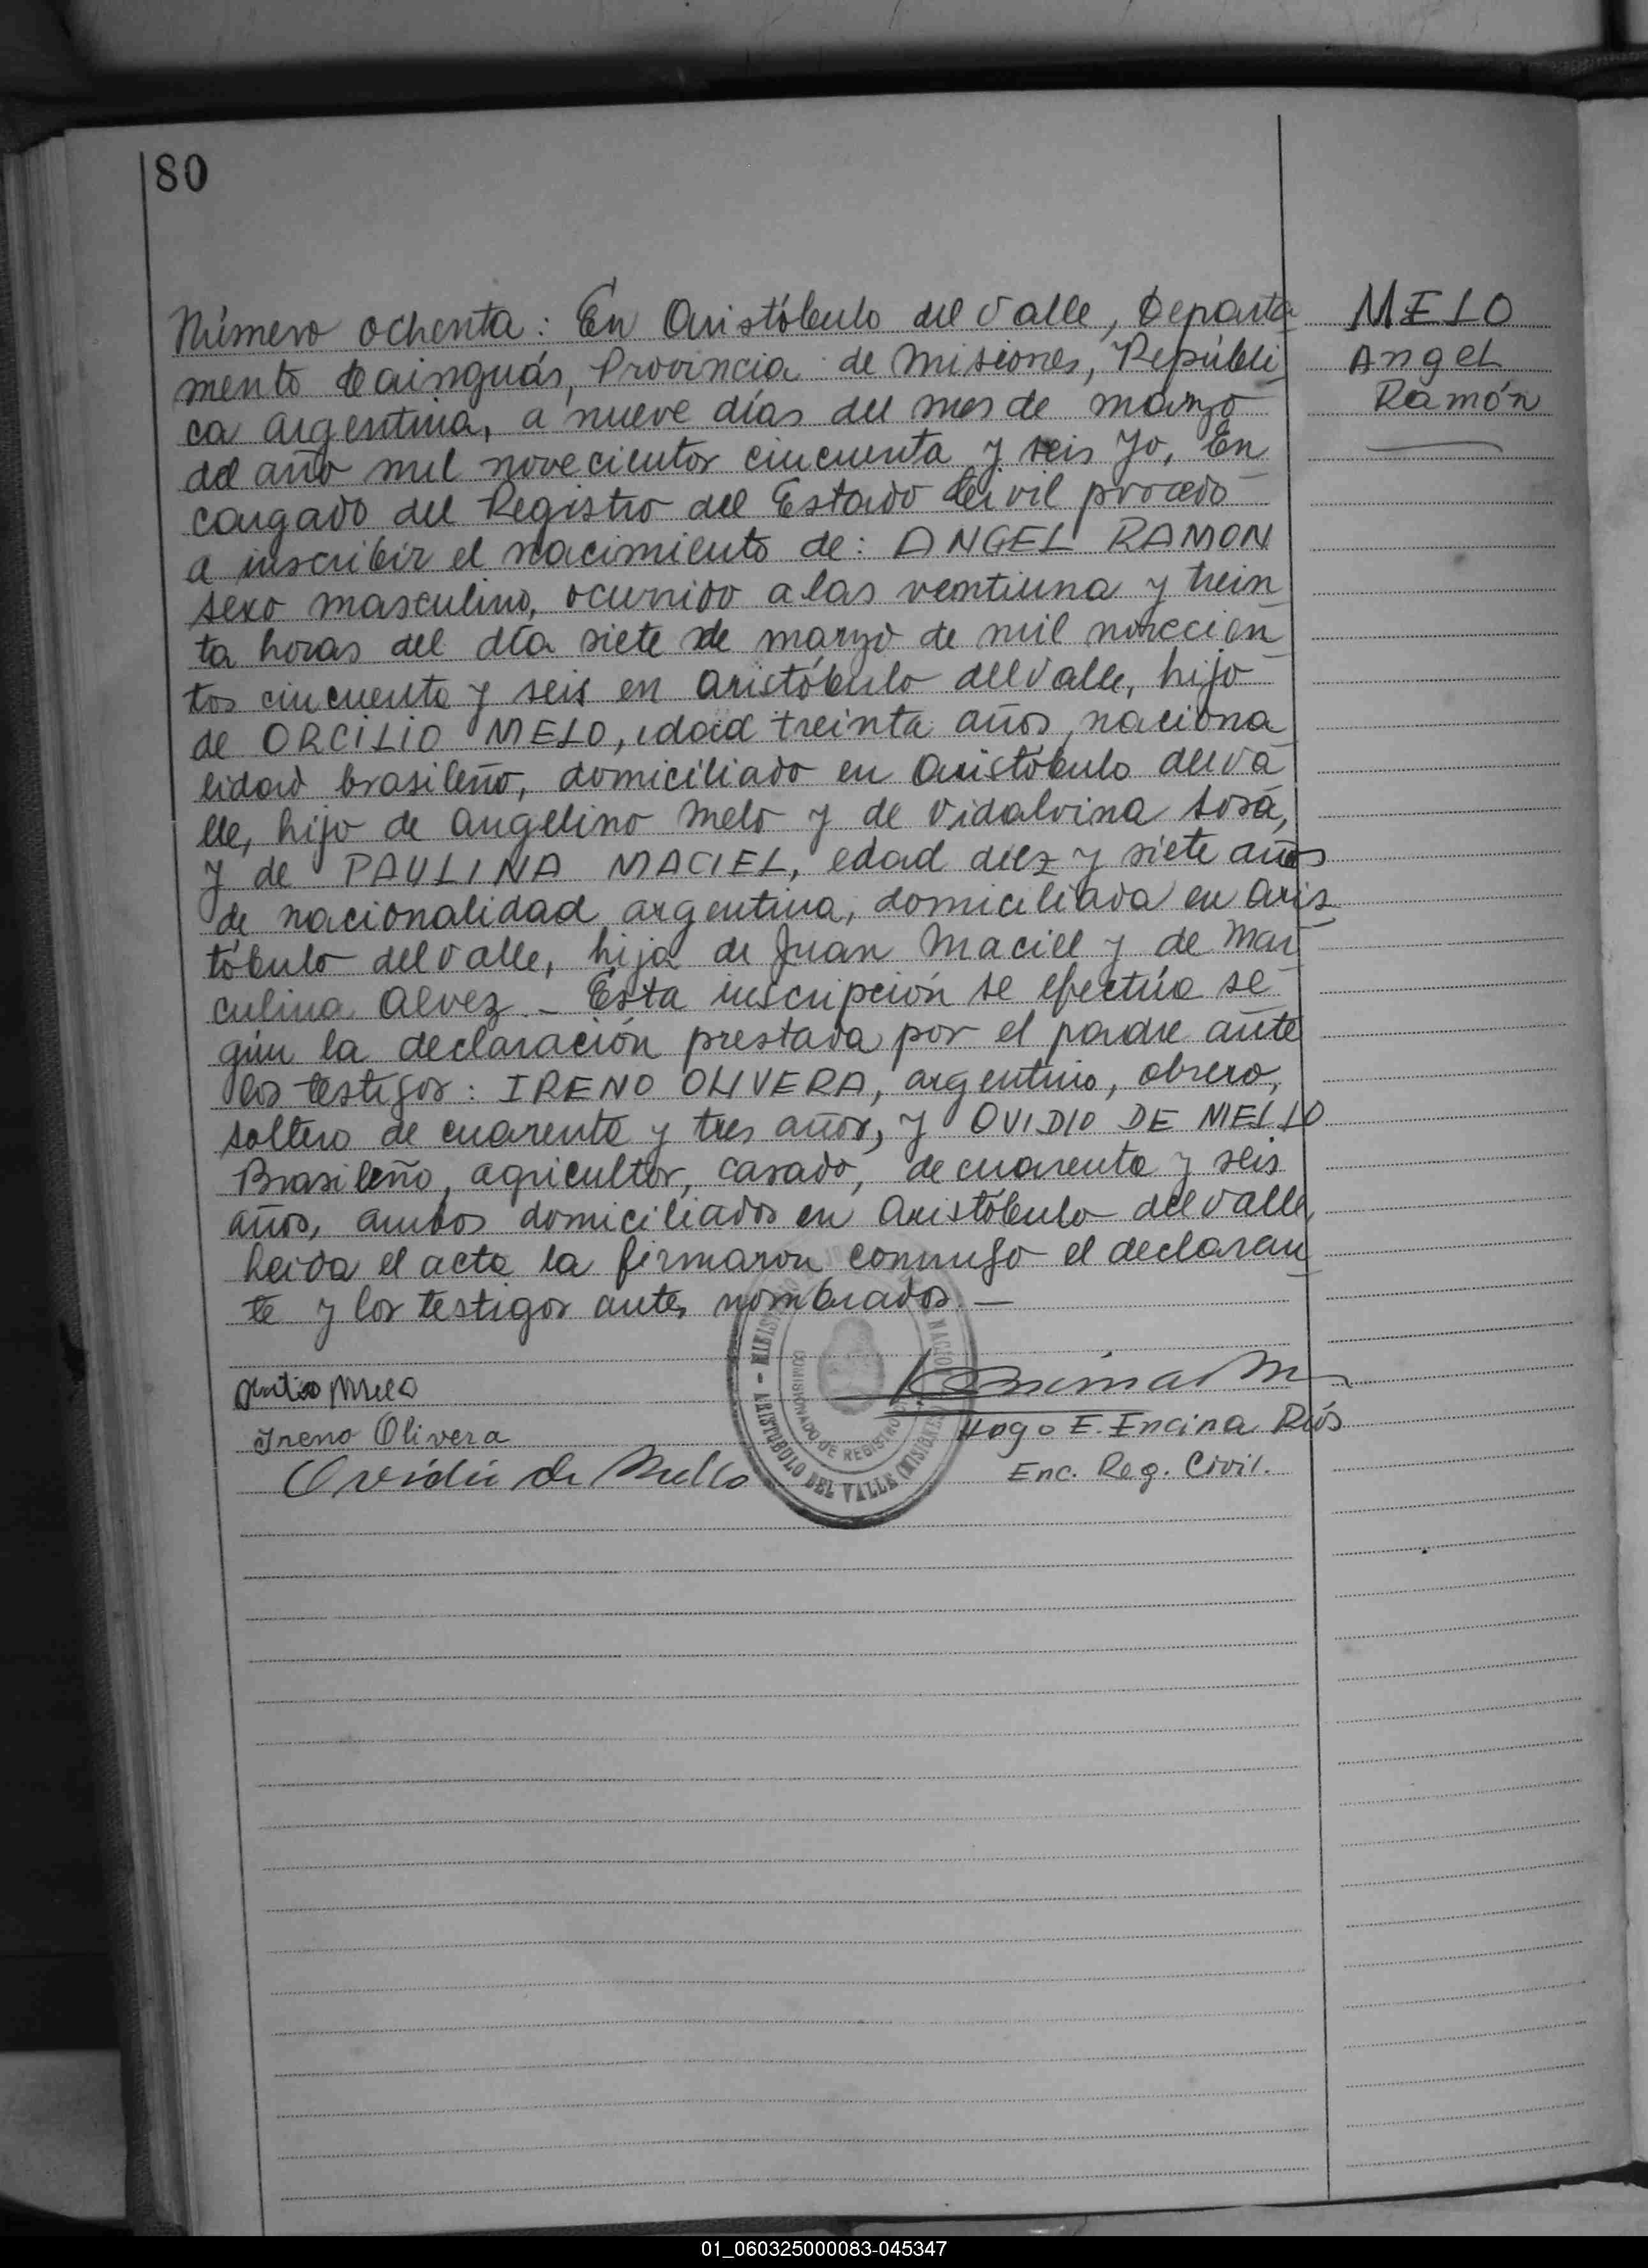 80
Número ochenta: En Aristóbulo del Valle, Departa
mento Cainguás, Provincia de Misiones, Repúbli
ca Argentina, a nueve días del mes de marzo
del año mil novecientos cincuenta y seis Yo, En
cargado del Registro del Estado Civil procedo
a inscribir el nacimiento de: ANGEL RAMON
sexo masculino, ocurrido a las ventiuna y trein
ta horas del día siete de marzo de mil novecien
tos cincuenta y seis en Aristóbulo del Valle, hijo
de ORCILIO MELO, edad treinta años, naciona
lidad brasileño, domiciliado en Aristóbulo del Va
lle, hijo de Angelino Melo y de Vidalvina Sosa,
y de PAULINA MACIEL, edad diez y siete años
de nacionalidad argentina, domiciliada en Aris
tóbulo del Valle, hija de Juan Maciel y de Mar
culina Alvez.- Esta inscripción se efectúa se
gún la declaración prestada por el padre ante
los testigos: IRENO OLIVERA, argentino, obrero,
soltero de cuarenta y tres años, y OVIDIO DE MELLO
Brasileño, agricultor, casado, de cuarenta y seis
años, ambos domiciliados en Aristóbulo del Valle,
Leida el acta la firmaron conmigo el declaran
te y los testigos antes nombrados.—
MELO
Angel
Ramón
Melo
Ireno Olivera
Ovidio de Mello
Hogo E. Encina Ríos
Enc. Reg. Civil.
ARISTOBULO DEL VALLE (MISIONES)
COMISIONADO DE REGISTRO
01_060325000083-045347